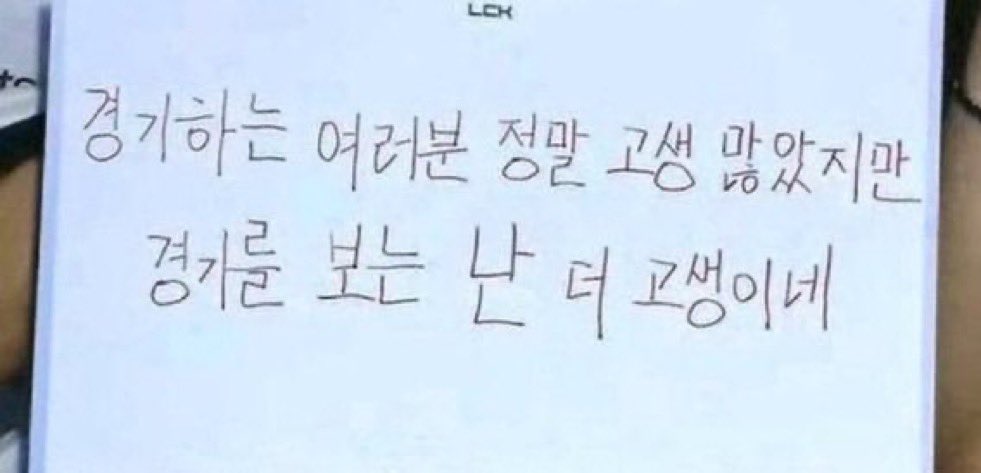 LCK
경기하는 여러분 정말 고생 많았지만
경기를 보는 난 더 고생이네